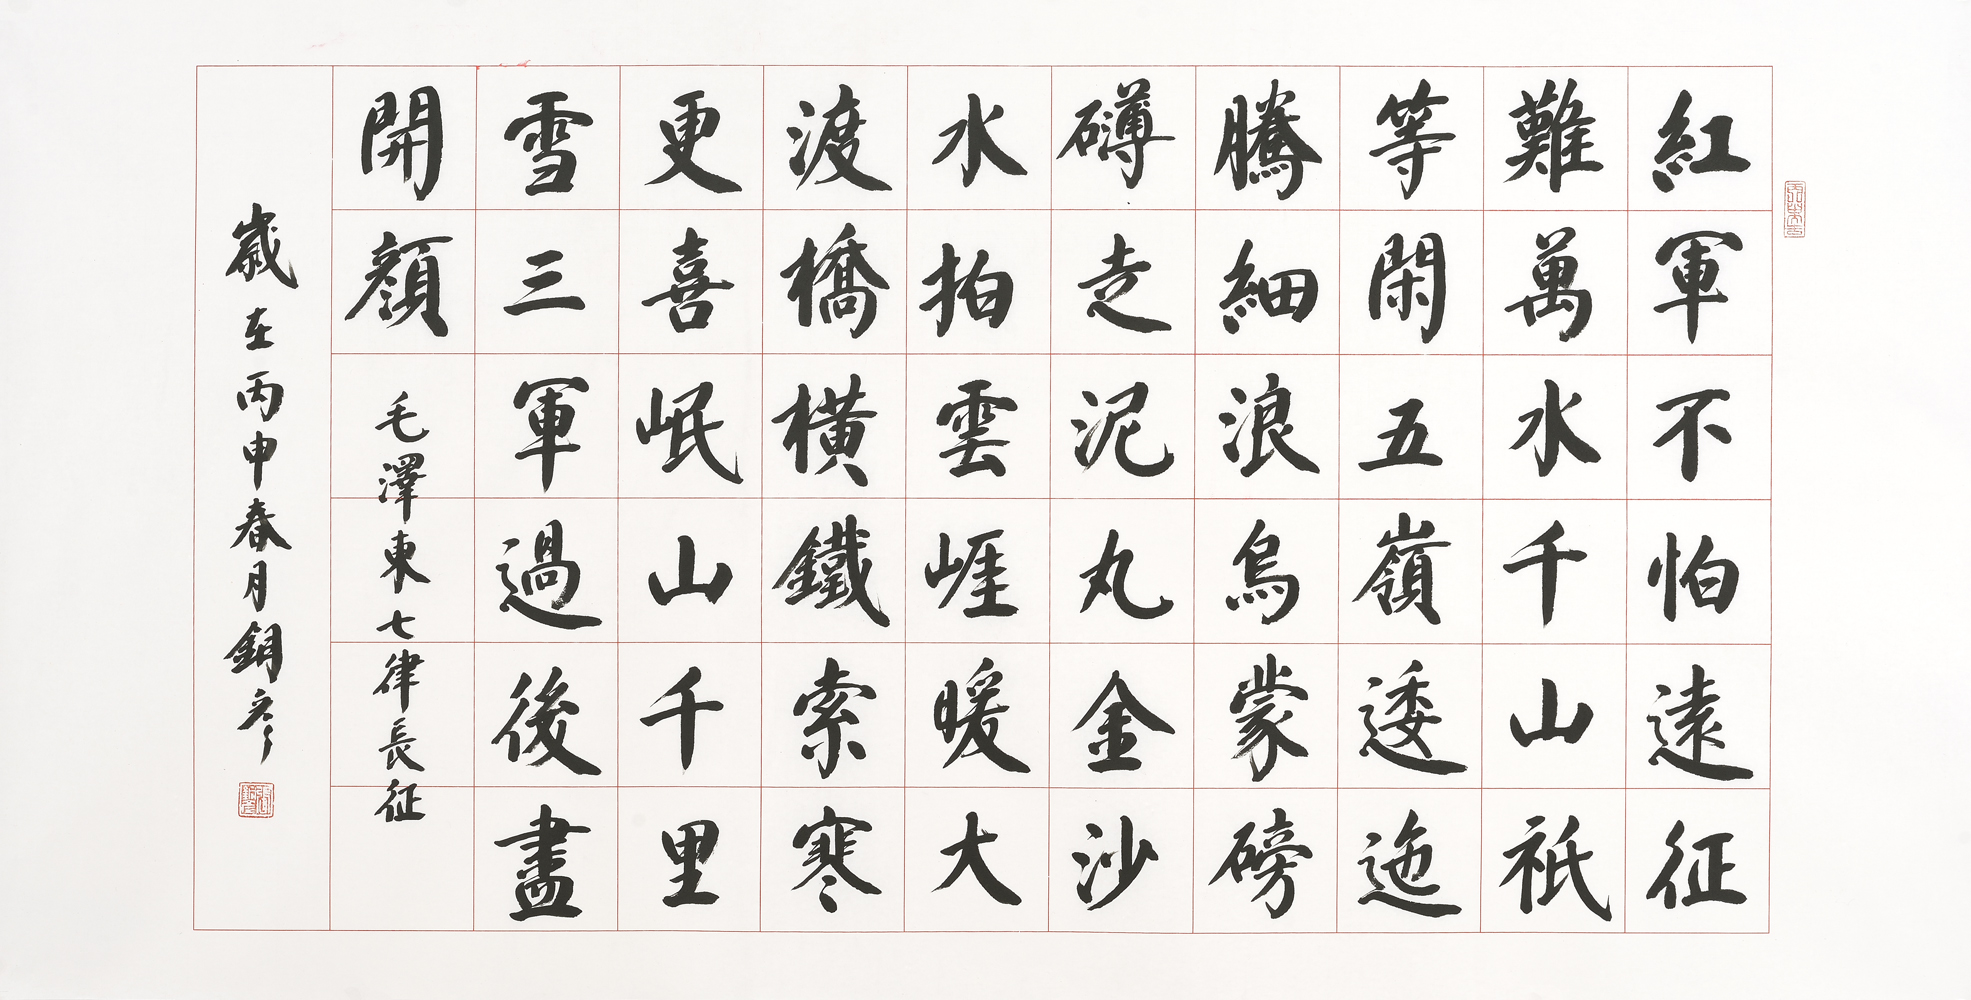 紅軍不怕遠征
難萬水千山祇
等閑五嶺逶迤
騰細浪烏蒙磅
礴走泥丸金沙
水拍雲崖暖大
渡橋橫鐵索寒
更喜岷山千里
雪三軍過後盡
開顏
毛澤東七律長征
歲在丙申春月銅彥